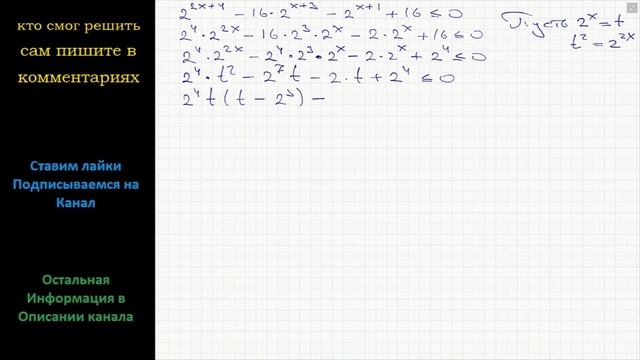 кто смог решить
сам пишите в
комментариях
Ставим лайки
Подписываемся на
Канал
Остальная
Информация в
Описании канала
2^{2x+4} - 16·2^{x+3} - 2^{x+1} + 16 ≤ 0
2^4·2^{2x} - 16·2^3·2^x - 2·2^x + 16 ≤ 0
2^4·2^{2x} - 2^4·2^3·2^x - 2·2^x + 2^4 ≤ 0
2^4·t^2 - 2^7t - 2·t + 2^4 ≤ 0
2^4t(t - 2^3) -
Пусть 2^x = t
t^2 = 2^{2x}